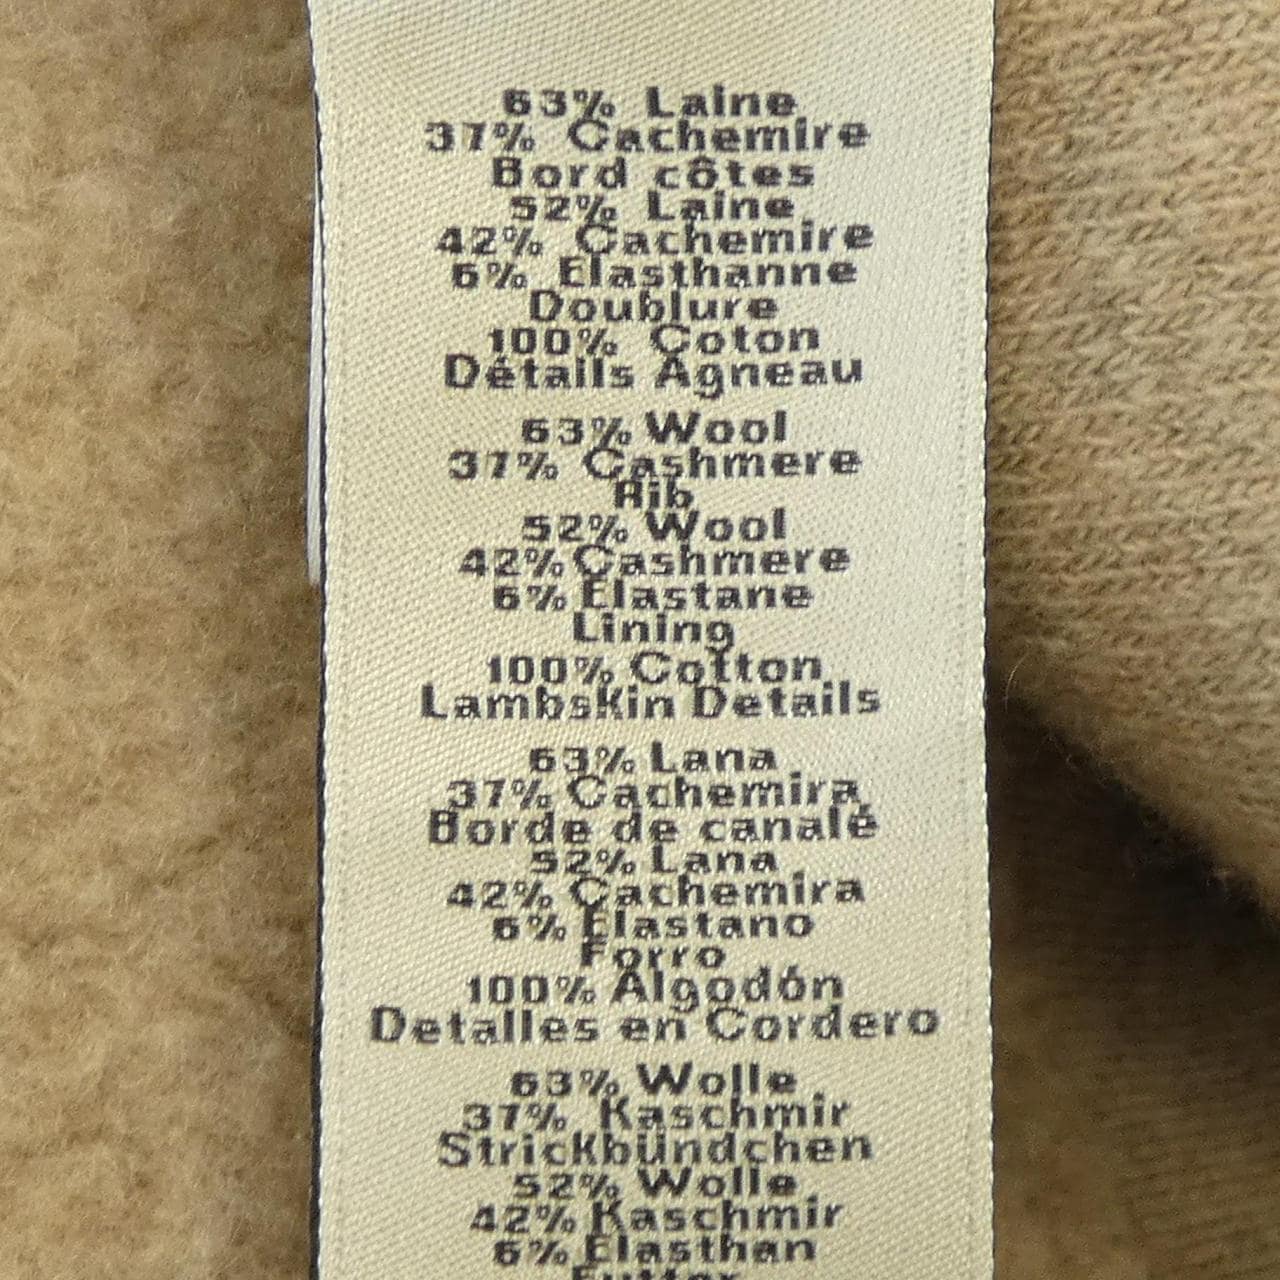 63% Laine
37% Cachemire
Bord côtes
52% Laine
42% Cachemire
6% Elasthanne
Doublure
100% Coton
Détails Agneau
63% Wool
37% Cashmere
Rib
52% Wool
42% Cashmere
6% Elastane
Lining
100% Cotton
Lambskin Details
63% Lana
37% Cachemira
Borde de canalé
52% Lana
42% Cachemira
6% Elastano
Forro
100% Algodón
Detalles en Cordero
63% Wolle
37% Kaschmir
Strickbündchen
52% Wolle
42% Kaschmir
6% Elasthan
Futter